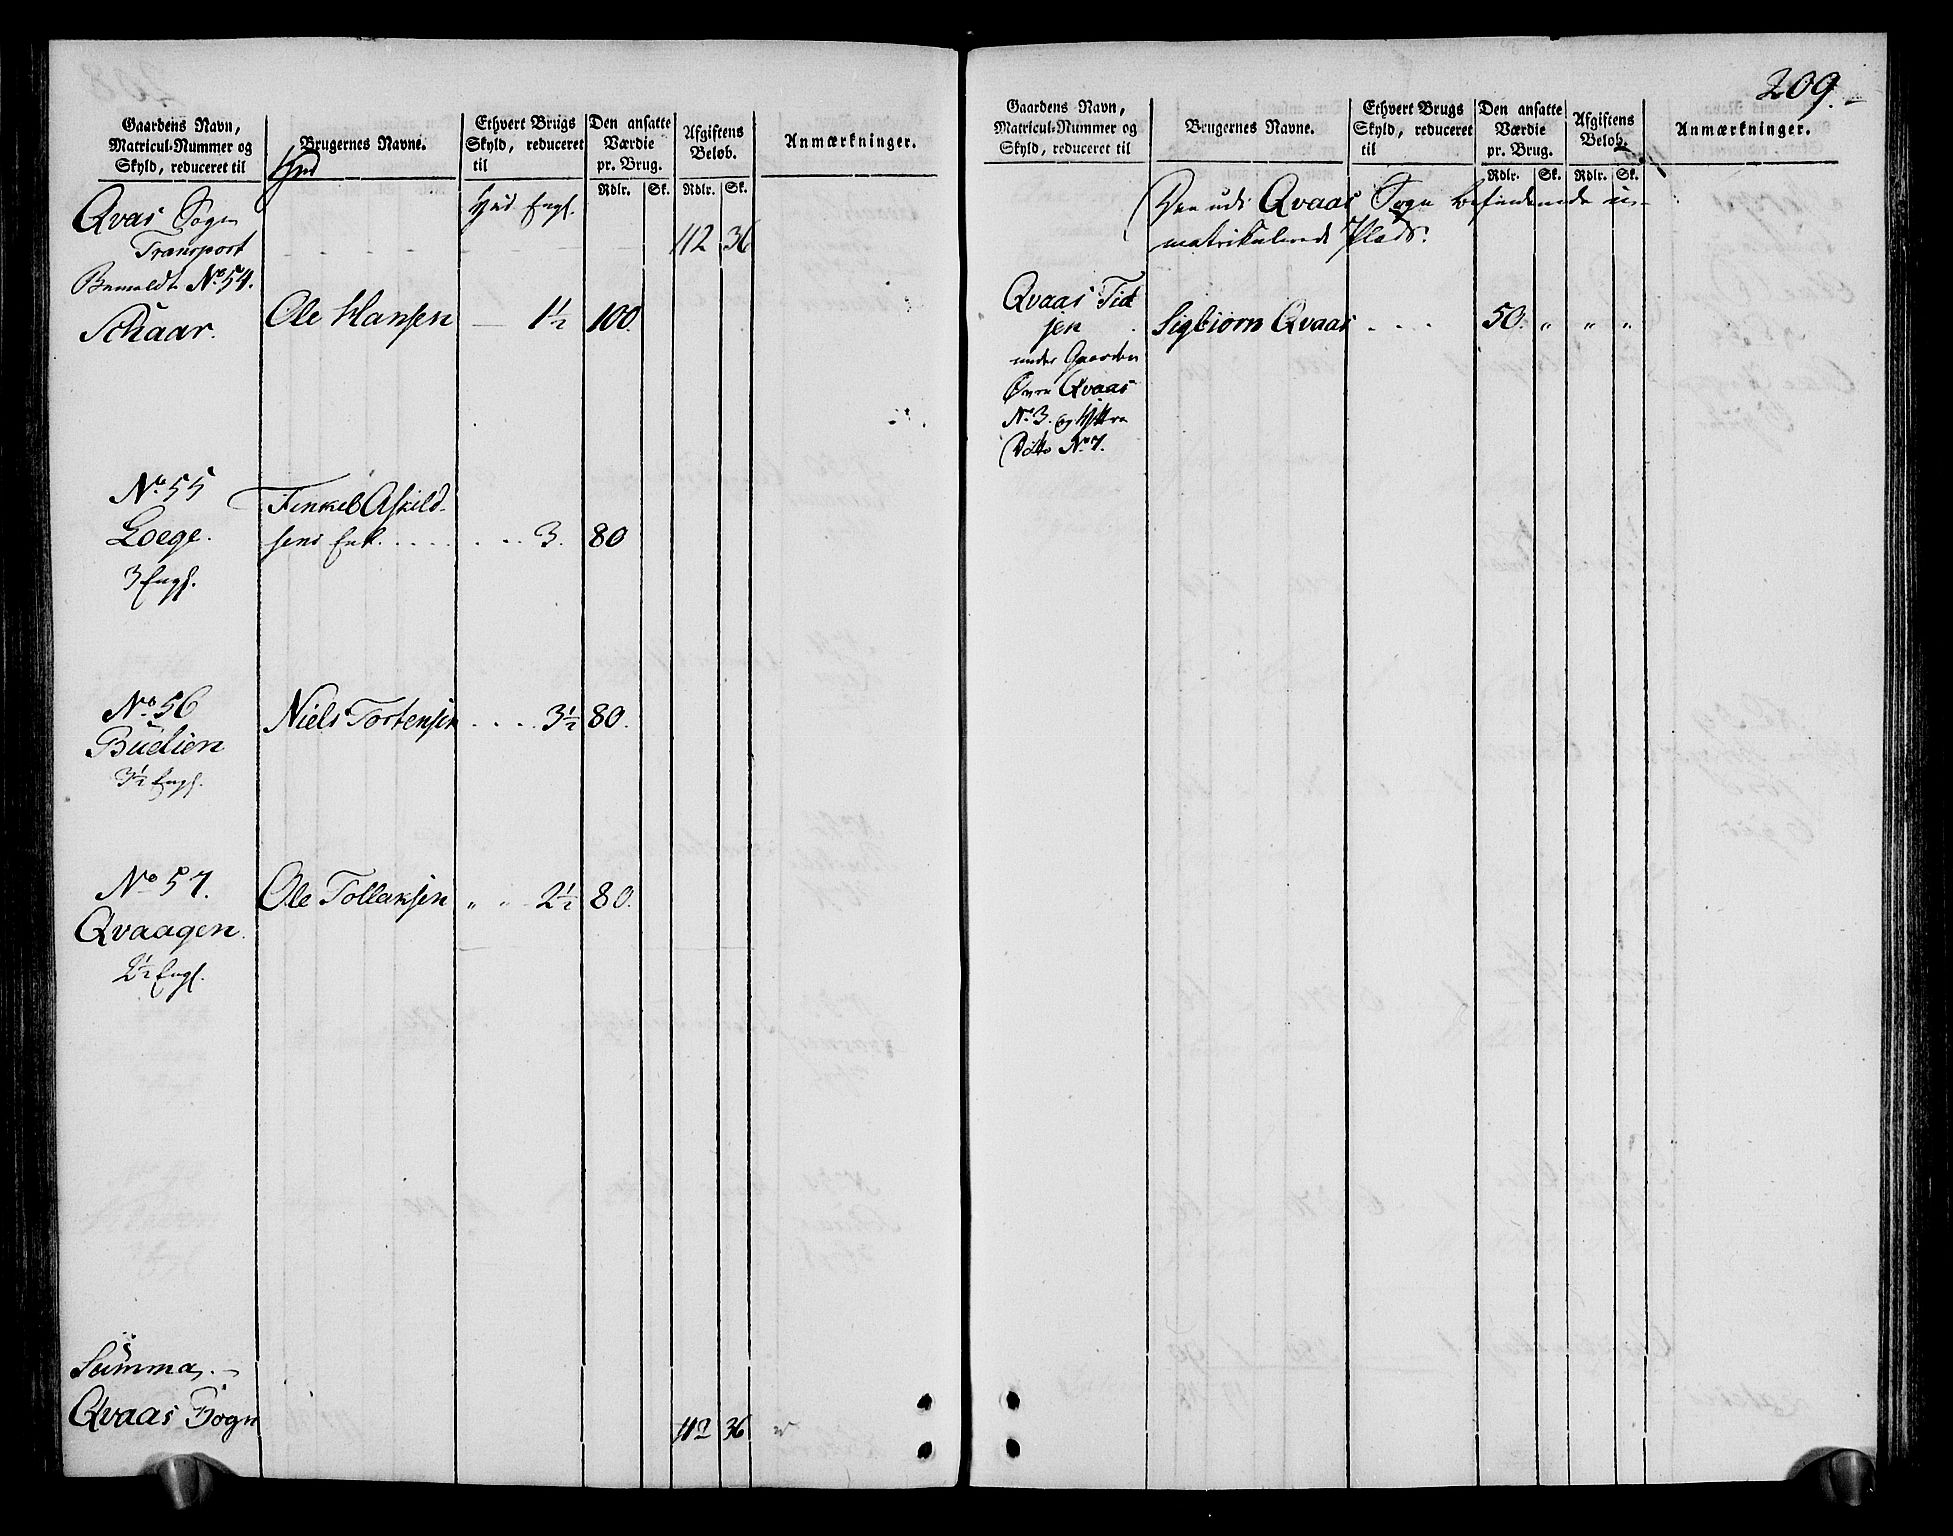 Gaardens Navn,
Matricul-Nummer og
Skyld, reduceret til
Hud
Brugernes Navne.
Ethvert Brugs
Skyld, reduceret
til
Hud Engl.
Den ansatte
Værdie
pr. Brug.
Rdlr. Sk.
Afgiftens
Beløb.
Rdlr. Sk.
Anmærkninger.
Qvas Sogn
Transport 112 36
No 54.
Schaar. Ole Hansen 1½ 100
No 55 Tenkel Askild-
Loege. sens Enk. 3. 80
3 Engl.
No 56 Niels Tortensen 3½ 80.
Budien
3½ Engl.
No 57. Ole Tollaksen „ „ 2½ 80.
Qvaagen.
2½ Engl.
Summa
Qvaas Sogn 112 36
209.
Gaardens Navn,
Matricul-Nummer og
Skyld, reduceret til
Brugernes Navne.
Ethvert Brugs
Skyld, reduceret
til
Den ansatte
Værdie
pr. Brug.
Rdlr. Sk.
Afgiftens
Beløb.
Rdlr. Sk.
Anmærkninger.
Den udi Qvaas Sogn befindende u-
matrikulerede Plads.
Qvaas Tid
jen Sigbiørn Qvaas 50. „ „ „
under Gaarden
Øvre Qvaas
No 3. og Yttre
Ditto No 7.